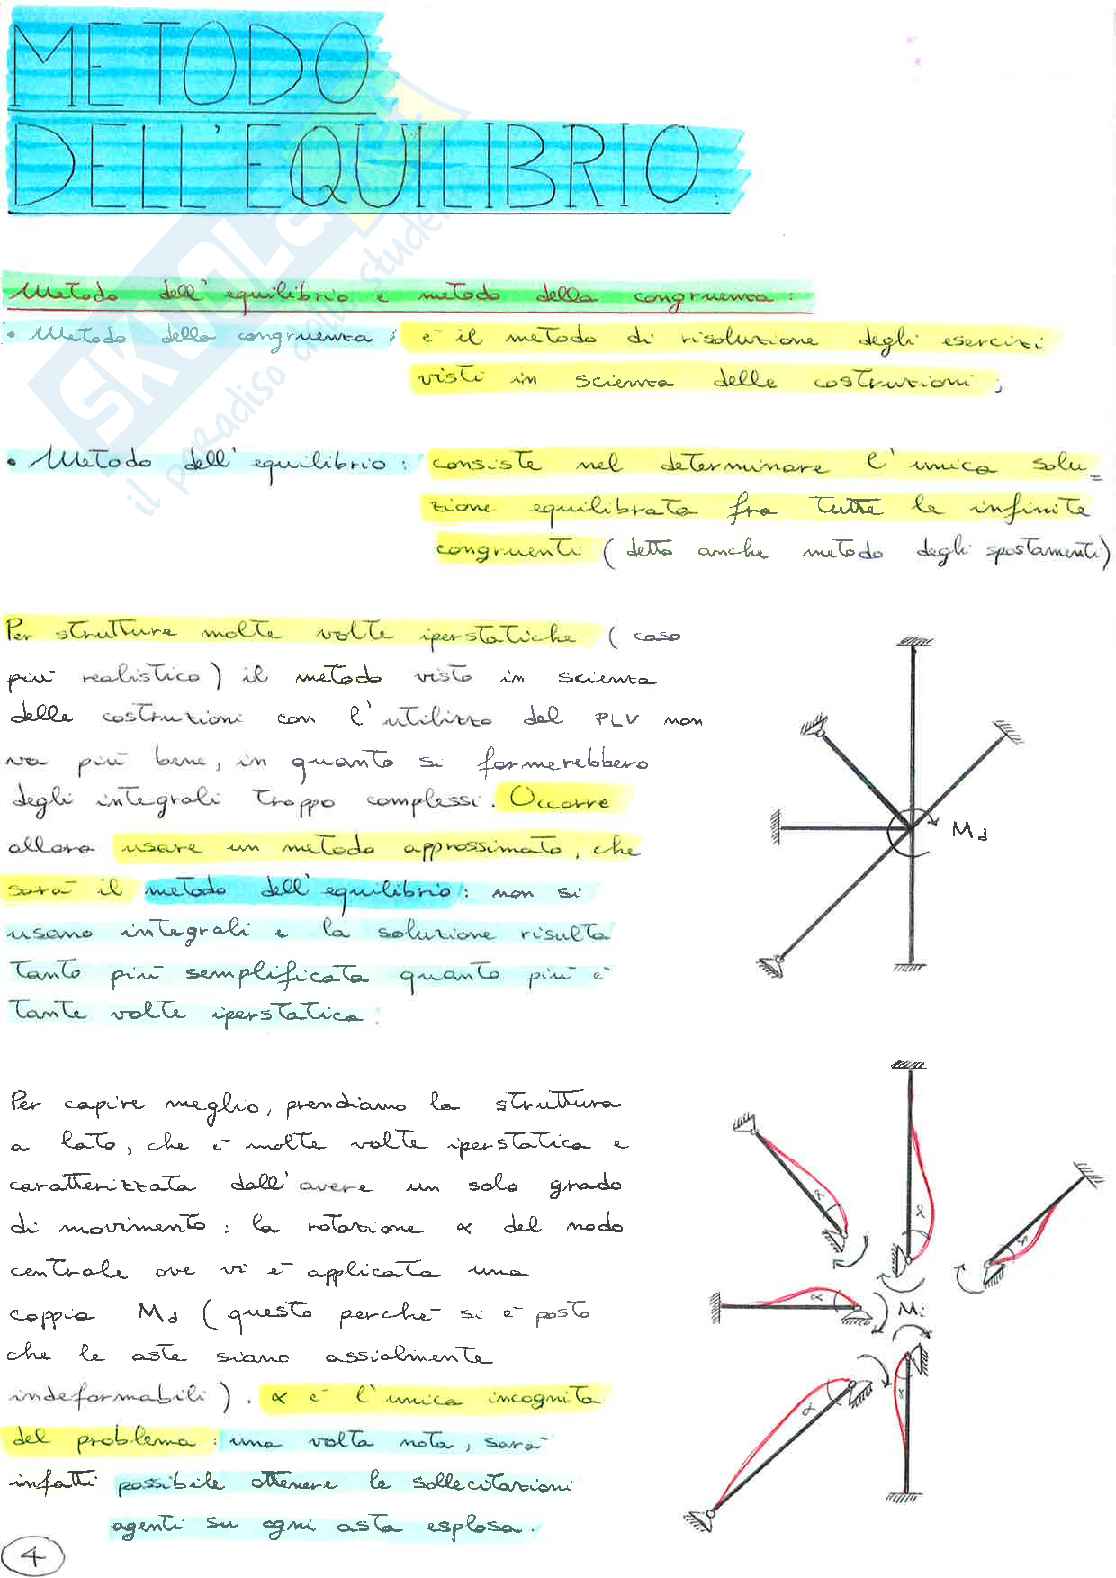 METODO
DELL'EQUILIBRIO.
Metodo dell'equilibrio e metodo della congruenza:
• Metodo della congruenza: è il metodo di risoluzione degli esercizi
visti in scienza delle costruzioni;
• Metodo dell'equilibrio: consiste nel determinare l'unica solu=
zione equilibrata fra tutte le infinite
congruenti (detto anche metodo degli spostamenti)
Per strutture molte volte iperstatiche (caso
più realistico) il metodo visto in scienza
delle costruzioni con l'utilizzo del PLV non
va più bene, in quanto si formerebbero
degli integrali troppo complessi. Occorre
allora usare un metodo approssimato, che
sarà il metodo dell'equilibrio: non si
usano integrali e la soluzione risulta
tanto più semplificata quanto più è
tante volte iperstatica.
Md
Per capire meglio, prendiamo la struttura
a lato, che è molte volte iperstatica e
caratterizzata dall'avere un solo grado
di movimento: la rotazione α del nodo
centrale ove vi è applicata una
coppia Md (questo perché si è posto
che le aste siano assialmente
indeformabili). α è l'unica incognita
del problema: una volta nota, sarà
infatti possibile ottenere le sollecitazioni
agenti su ogni asta esplosa.
α
α
α
α
Mi
α
α
4
SKUOLA
il paradiso dello studente